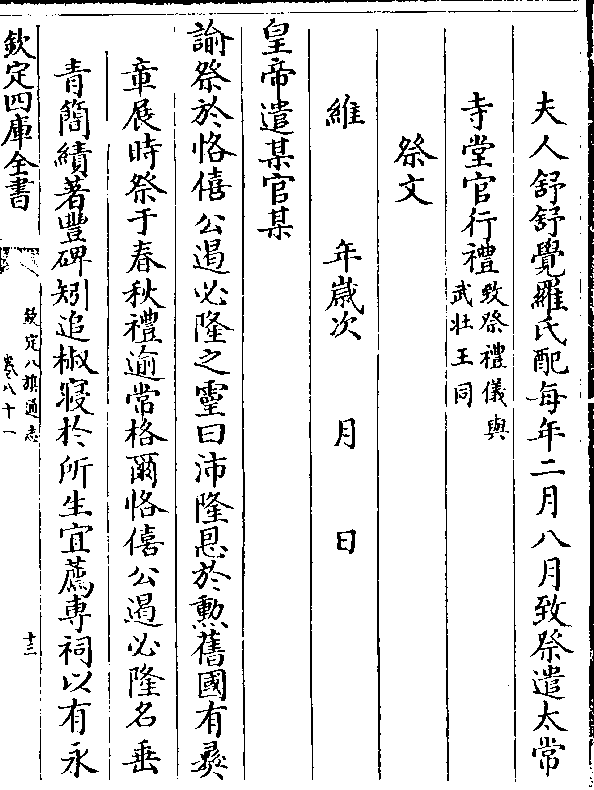 夫人舒舒覺羅氏配每年二月八月致祭遣太常
寺堂官行禮致祭禮儀與
武壯王同
祭文
維　年歲次　月　日
皇帝遣某官某
諭祭於恪僖公遏必隆之靈曰沛隆恩於勲舊國有彛
章展時祭于春秋禮逾常格爾恪僖公遏必隆名垂
青簡績著豐碑矧追椒寢於所生宜薦專祠以有永
欽定四庫全書
欽定八旗通志
卷八十一
十三